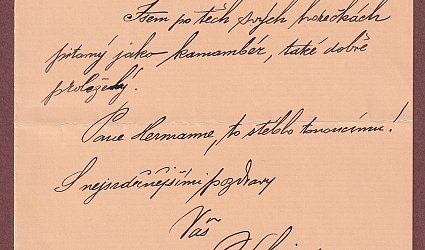 Jsem po těch svých horečkách
jako kamambér, také dobře
proležený.
Pane Hermanne, to stéblo tonoucímu!
S nejsrdečnějšími pozdravy
Váš